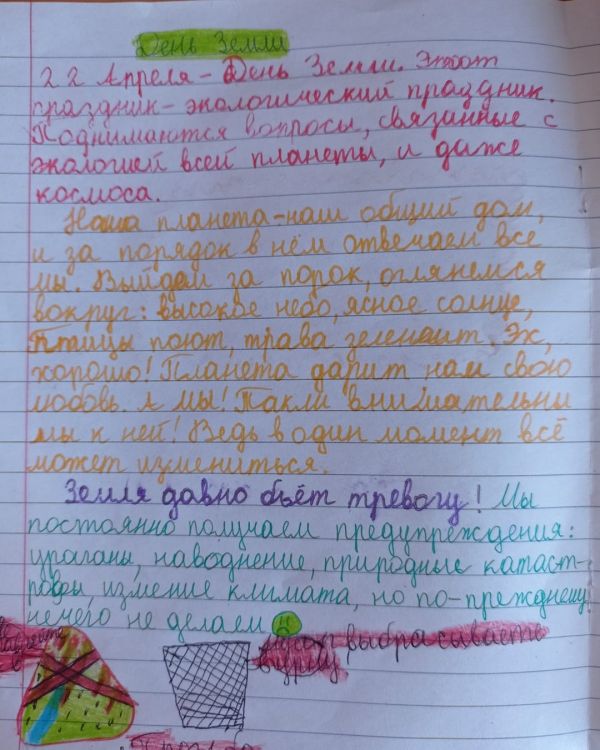 День Земли
22 Апреля - День Земли. Этот
праздник - экологический праздник.
Поднимаются вопросы, связанные с
экологией всей планеты, и даже
космоса.
Наша планета - наш общий дом,
и за порядок в нём отвечаем все
мы. Выйдем за порок, оглянемся
вокруг: высокое небо, ясное солнце,
Птицы поют, трава зеленеит. Эх,
хорошо! Планета дарит нам свою
любовь. А мы! Такли внимательны
мы к ней! Ведь в один момент всё
может измениться.
Земля давно бьёт тревогу! Мы
постоянно получаем предупреждения:
ураганы, наводнение, природные катаст-
рофы, измение климата, но по-прежднему
нечего не делаем
мусор выбрасывайте
в урну